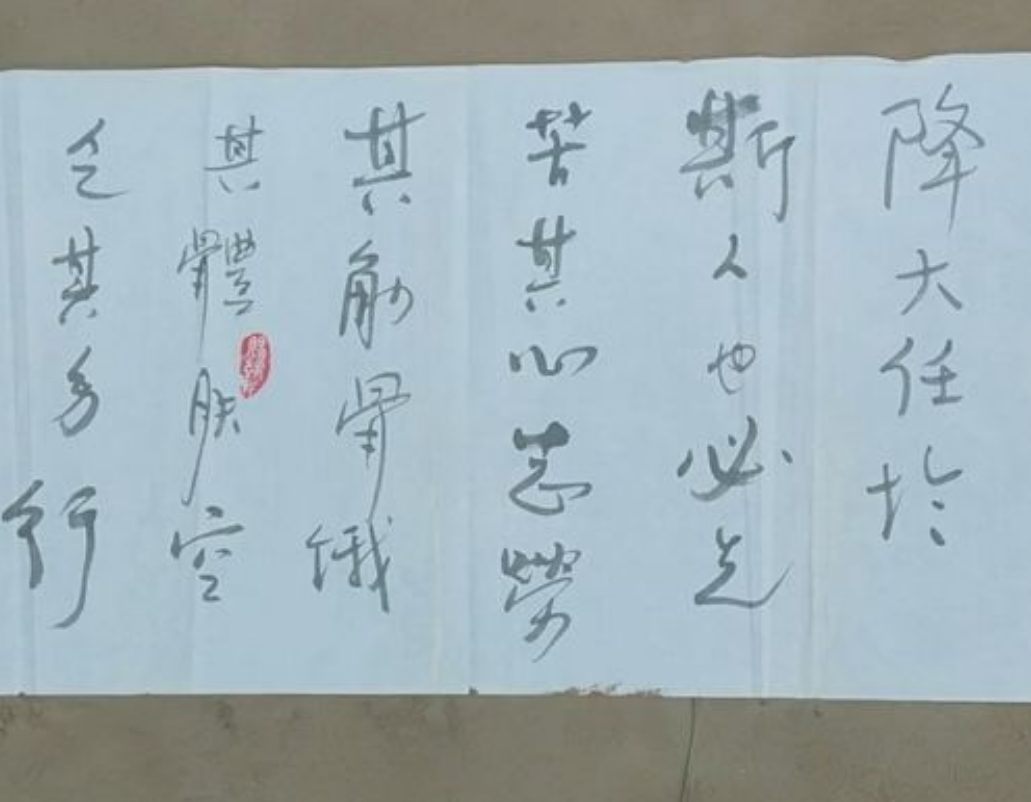 降大任於
斯人也必先
苦其心志勞
其筋骨餓
其體膚空
乏其身行